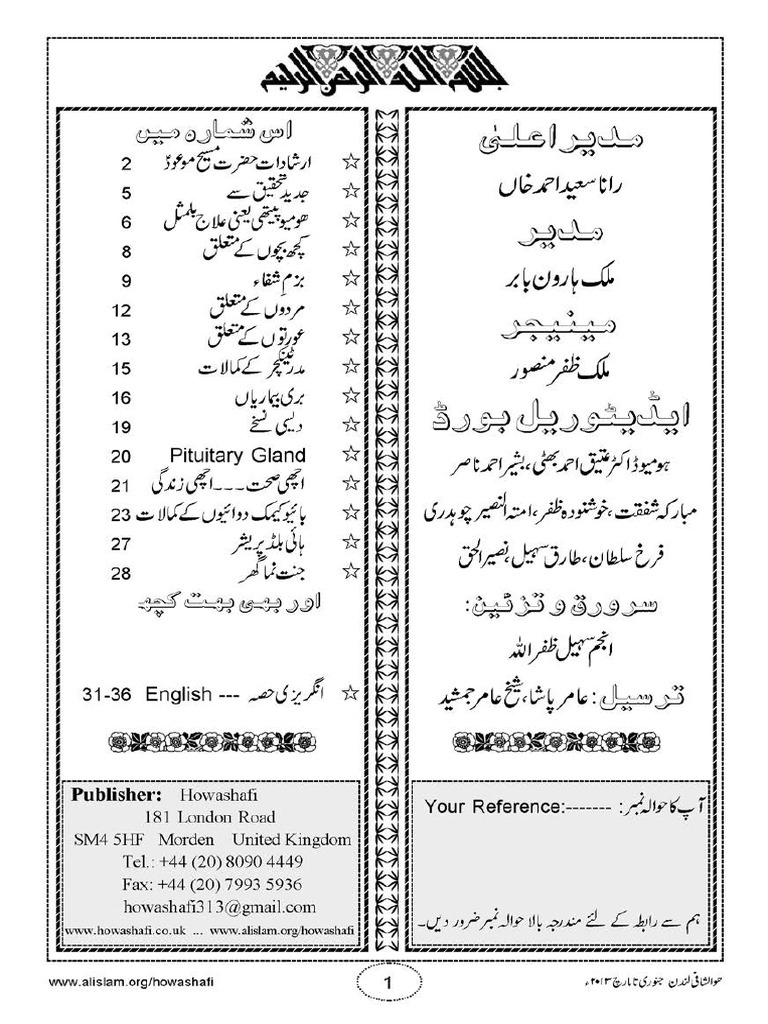 بسم اللہ الرحمن الرحیم
مدیر اعلیٰ
رانا سعید احمد خاں
مدیر
ملک ہارون بابر
مینیجر
ملک ظفر منصور
ایڈیٹوریل بورڈ
ہومیو ڈاکٹر عتیق احمد بھٹی، بشیر احمد ناصر
مبارکہ شفقت، خوشنودہ ظفر، امتہ النصیر چوہدری
فرخ سلطان، طارق سہیل، نصیر الحق
سرورق و تزئین:
انجم سہیل ظفر اللہ
ترسیل: عامر پاشا، شیخ عامر جمشید
آپ کا حوالہ نمبر: -------:Your Reference
ہم سے رابطہ کے لئے مندرجہ بالا حوالہ نمبر ضرور دیں۔
اس شمارہ میں
☆ ارشادات حضرت مسیح موعودؑ 2
☆ جدید تحقیق سے 5
☆ ھومیوپیتھی یعنی علاج بلمثل 6
☆ کچھ بچوں کے متعلق 8
☆ بزمِ شفاء 9
☆ مردوں کے متعلق 12
☆ عورتوں کے متعلق 13
☆ مدر ٹینکچر کے کمالات 15
☆ بری بیماریاں 16
☆ دیسی نسخے 19
☆ Pituitary Gland 20
☆ اچھی صحت ۔۔۔ اچھی زندگی 21
☆ بائیو کیمک دوائیوں کے کمالات 23
☆ ہائی بلڈ پریشر 27
☆ جنت نما گھر 28
اور بھی بہت کچھ
☆ انگریزی حصہ --- English 31-36
Publisher: Howashafi
181 London Road
SM4 5HF Morden United Kingdom
Tel.: +44 (20) 8090 4449
Fax: +44 (20) 7993 5936
howashafi313@gmail.com
www.howashafi.co.uk ... www.alislam.org/howashafi
ھوالشافی لندن جنوری تا مارچ ۲۰۱۳ء
1
www.alislam.org/howashafi